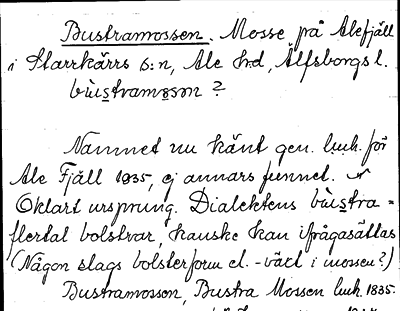 Bustramossen. Mosse på Alefjäll
i Starrkärrs s:n, Ale h:d, Älfsborgs l.
bùstramɔsən ?
Namnet nu känt gen. luh. för
Ale Fjäll 1835, ej annars funnet.
Oklart ursprung. Dialektens bùstra =
flertal bolstrar, kanske kan ifrågasättas
(Någon slags bolsterform el. -växt i mossen?)
Bustramossen, Bustra Mossen luh. 1835.